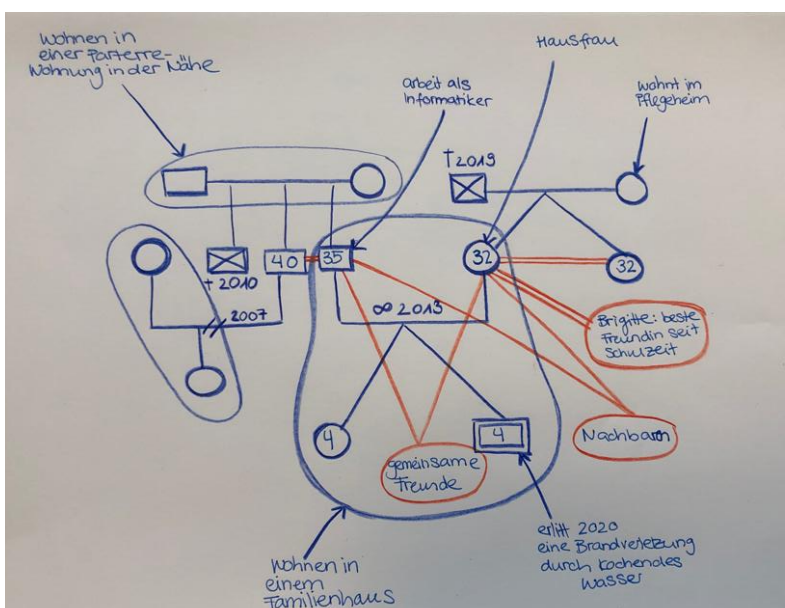 Wohnen in
einer Parterre-
Wohnung in der Nähe
Hausfrau
arbeit als
Informatiker
wohnt im
Pflegeheim
†2019
† 2010
40
35
32
32
2007
∞ 2013
Brigitte: beste
Freundin seit
Schulzeit
4
4
gemeinsame
Freunde
Nachbarn
erlitt 2020
eine Brandverletzung
durch kochendes
Wasser
Wohnen in
einem
Familienhaus